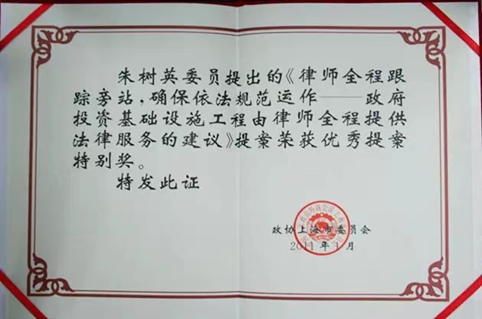 朱树英委员提出的《律师全程跟
踪旁站，确保依法规范运作——政府
投资基础设施工程由律师全程提供
法律服务的建议》提案荣获优秀提案
特别奖。
特发此证
政协上海市委员会
年1月